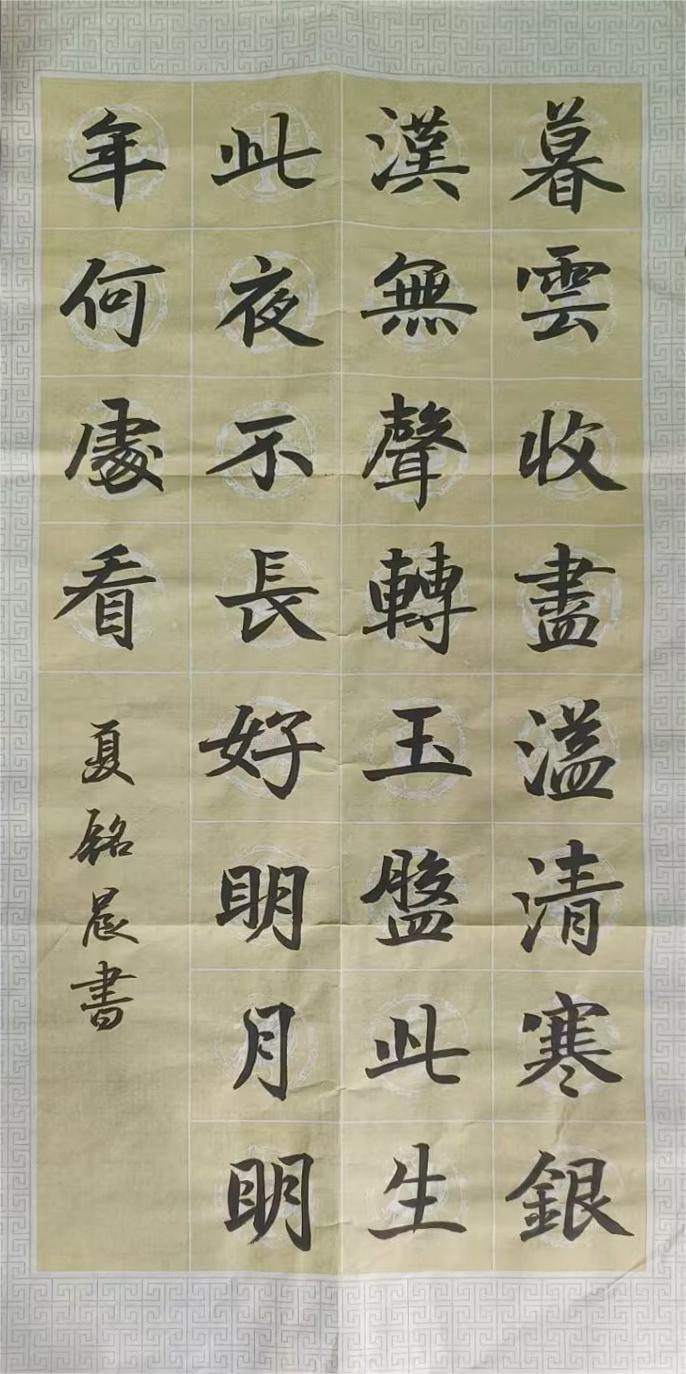 暮雲收盡溢清寒銀
漢無聲轉玉盤此生
此夜不長好明月明
年何處看
夏銘晨書